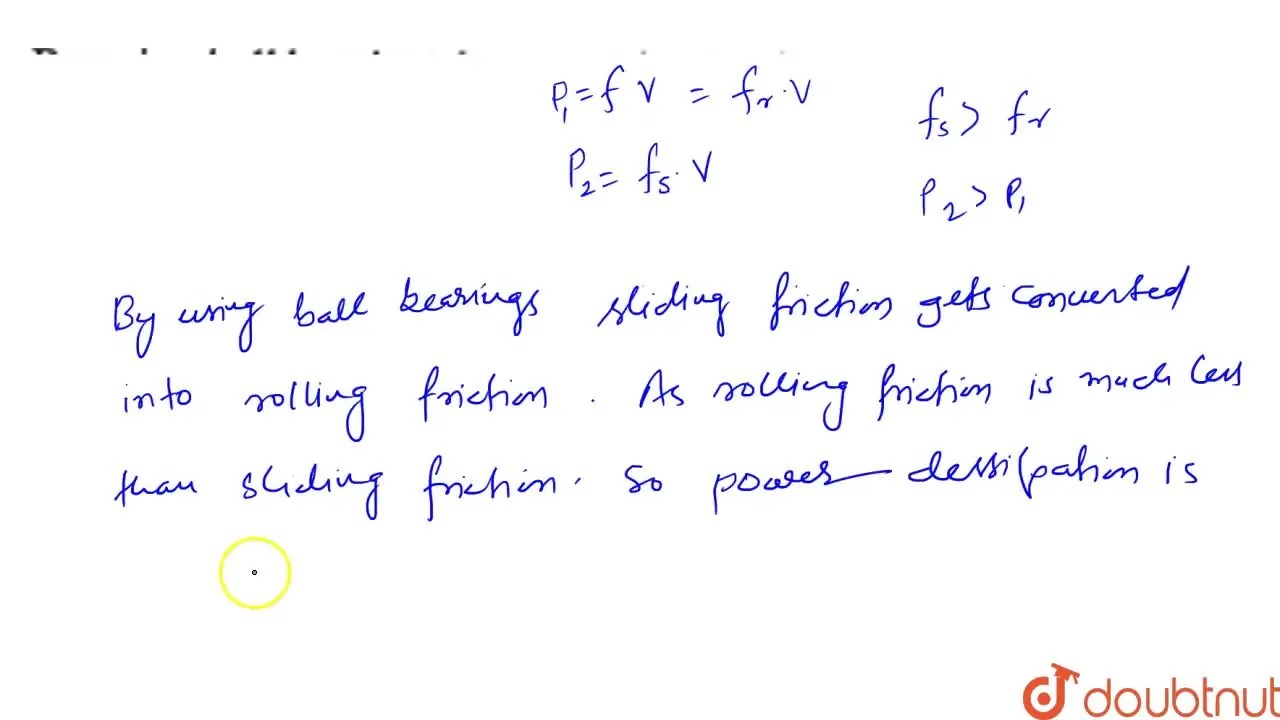 P₁ = f V = fᵣ · V
fₛ > fᵣ
P₂ = fₛ · V
P₂ > P₁
By using ball bearings sliding friction gets converted
into rolling friction . As rolling friction is much less
than sliding friction . So power dessipation is
doubtnut